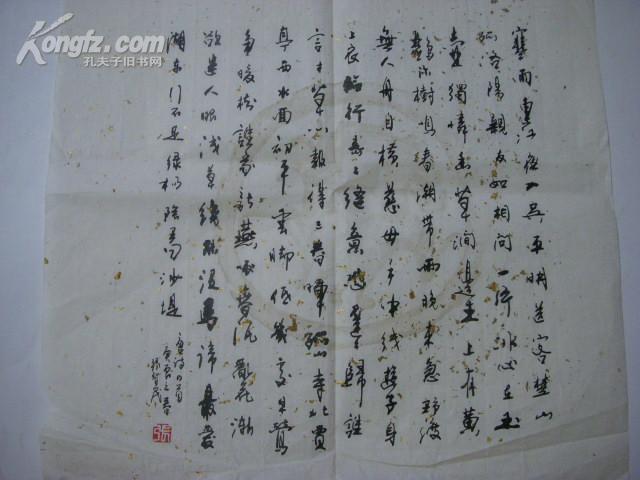 Kongfz.com
孔夫子旧书网
寒雨连江夜入吴平明送客楚山
孤洛阳親友如相问一片冰心在玉
壶獨憐幽草涧邊生上有黄
鸝深樹鳴春潮带雨晚来急野渡
無人舟自横慈母手中线遊子身
上衣临行密々缝意恐遲々歸誰
言寸草心報得三春暉孤山寺北賈
亭西水面初平雲脚低幾處早鶯
争暖樹誰家新燕啄春泥亂花漸
欲迷人眼浅草缐能没馬蹄最爱
湖東行不足绿杨陰里白沙堤
唐诗四首
之春